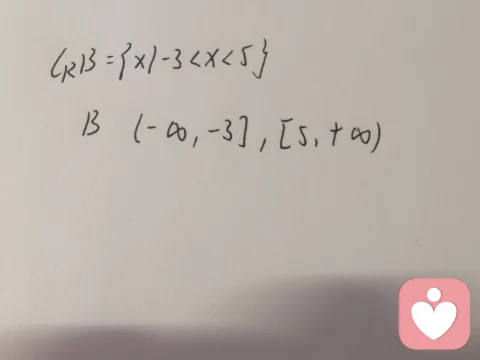 ∁ᵣB={x|-3<x<5}
B (-∞,-3],[5,+∞)